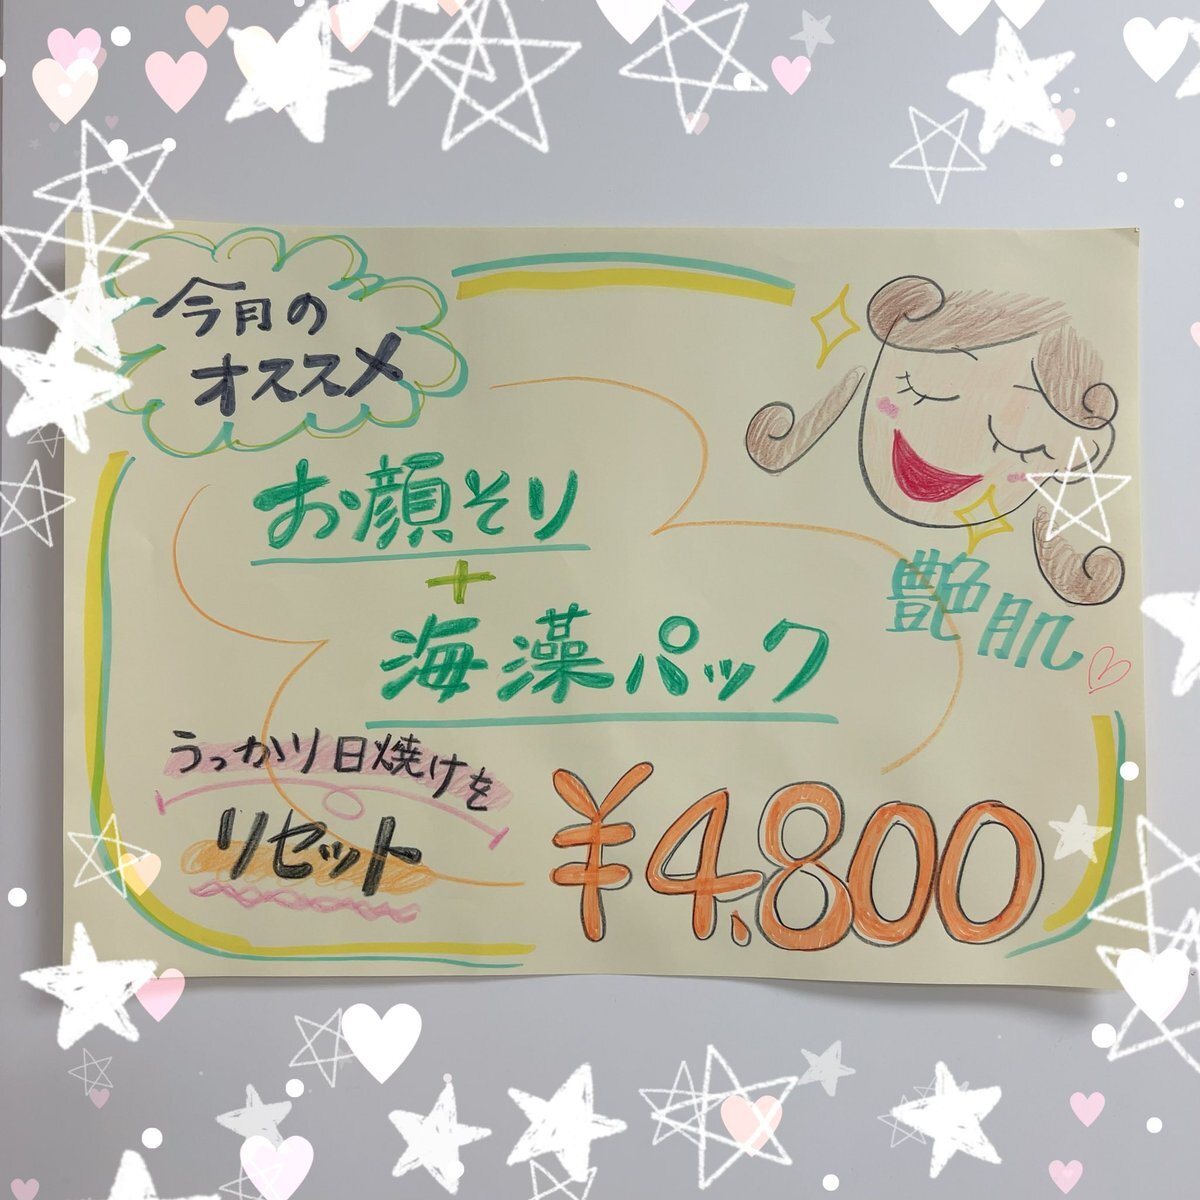 今月の
オススメ
お顔そり
+
海藻パック
艶肌
うっかり日焼けを
リセット
¥4,800